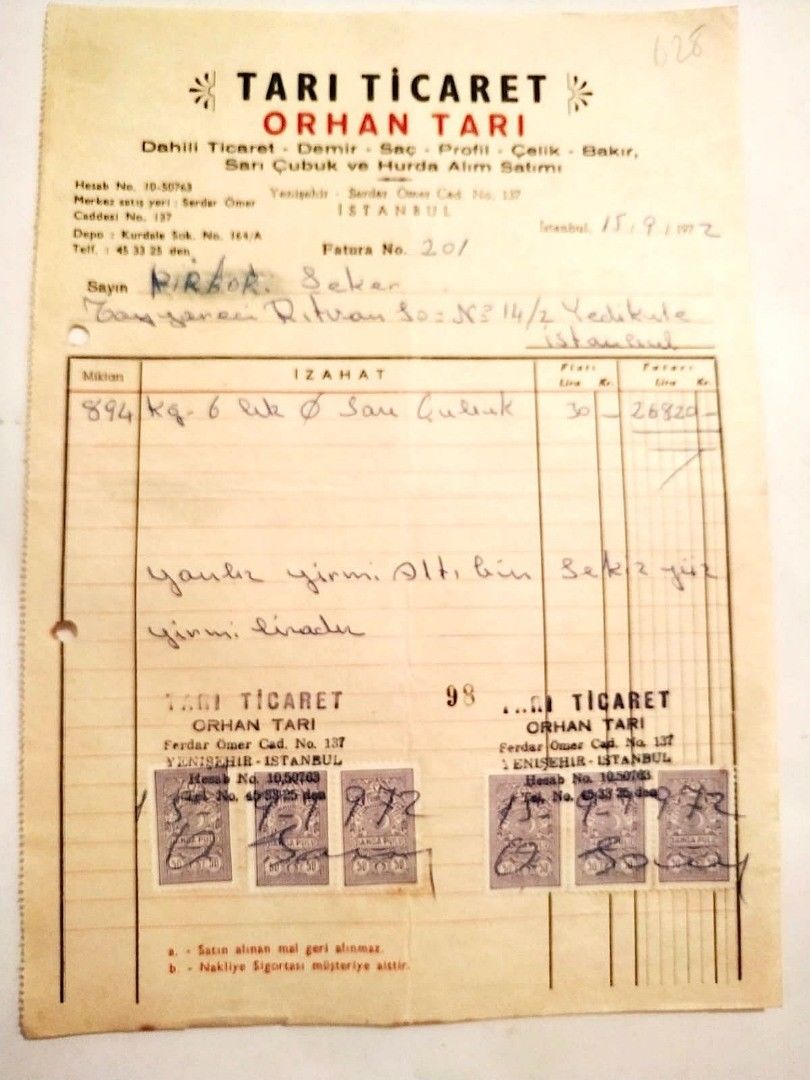 628
TARI TİCARET
ORHAN TARI
Dahili Ticaret - Demir - Saç - Profil - Çelik - Bakır,
Sarı Çubuk ve Hurda Alım Satımı
Hesab No. 10-50763
Merkez satış yeri : Serdar Ömer
Caddesi No. 137
Depo : Kurdele Sok. No. 164/A
Telf. : 45 33 25 den
Yenişehir - Serdar Ömer Cad. No. 137
İSTANBUL
İstanbul, 15/9/1972
Fatura No. 201
Sayın KİRKOR. Şeker
Rıdvan So: No 14/2 Yedikule
İstanbul
Miktarı İZAHAT Fiatı Lira Kr. Tutarı Lira Kr.
894 Kg - 6 lık Ø Sarı Çubuk 30 - 26820 -
yalnız yirmi altı bin sekiz yüz
yirmi liradır
98
TARI TİCARET
ORHAN TARI
Serdar Ömer Cad. No. 137
YENİŞEHİR - İSTANBUL
Hesab No. 10,50763
Tel. No. 45 33 25 den
15-9-1972
DAMGA PULU
50 50
TARI TİCARET
ORHAN TARI
Serdar Ömer Cad. No. 137
YENİŞEHİR - İSTANBUL
Hesab No. 10,50763
Tel. No. 45 33 25 den
15-9-1972
DAMGA PULU
50 50
a. - Satın alınan mal geri alınmaz.
b. - Nakliye Sigortası müşteriye aittir.